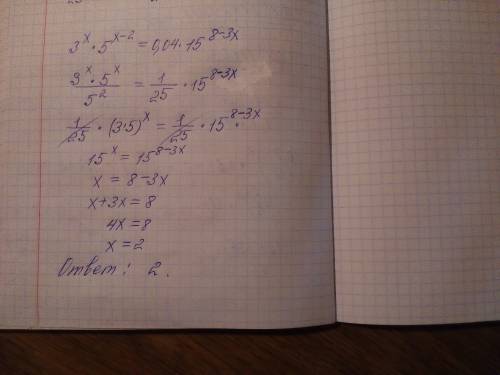 3^x · 5^(x-2) = 0,04 · 15^(8-3x)
(3^x · 5^x)/5^2 = 1/25 · 15^(8-3x)
1/25 · (3·5)^x = 1/25 · 15^(8-3x)
15^x = 15^(8-3x)
x = 8-3x
x+3x = 8
4x = 8
x = 2
Ответ: 2.